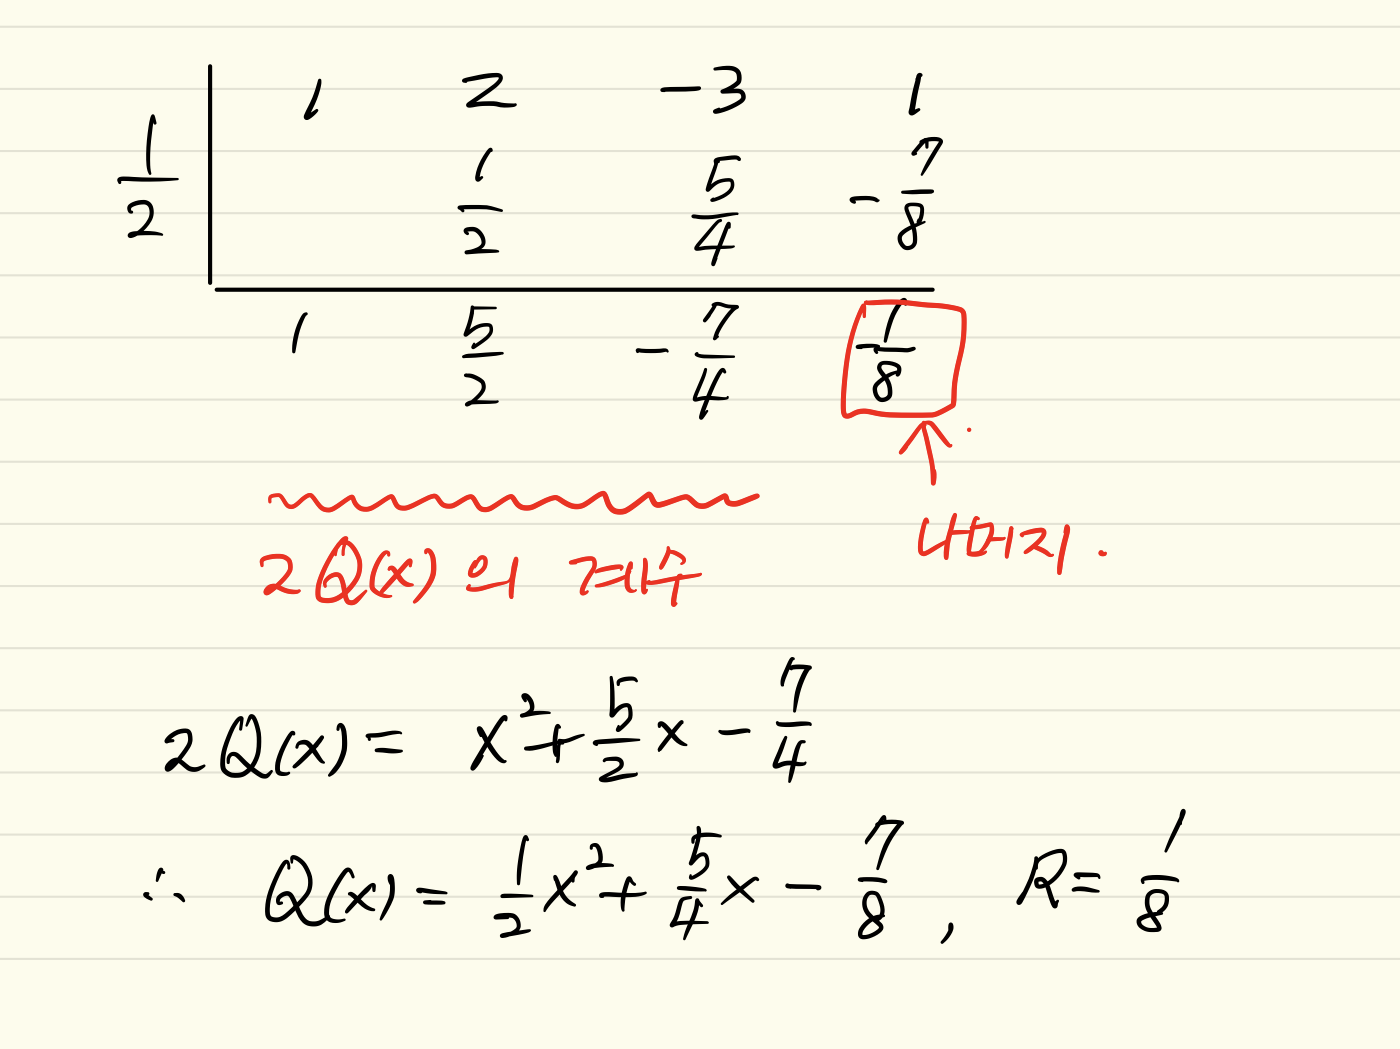 1 2 -3 1
1/2 1/2 5/4 -7/8
1 5/2 -7/4 1/8
나머지.
2Q(x)의 계수
2Q(x) = x² + 5/2 x - 7/4
∴ Q(x) = 1/2 x² + 5/4 x - 7/8 , R = 1/8